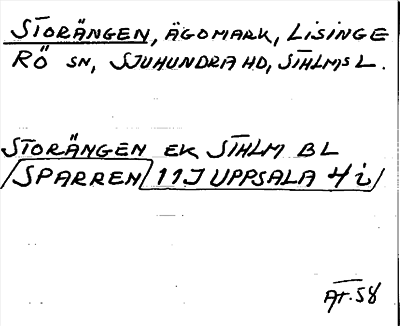 STORÄNGEN, ÄGOMARK, LISINGE
RÖ SN, SJUHUNDRA HD, STHLMS L.
STORÄNGEN EK STHLM BL
SPARREN 11J UPPSALA 4 i
AT.58